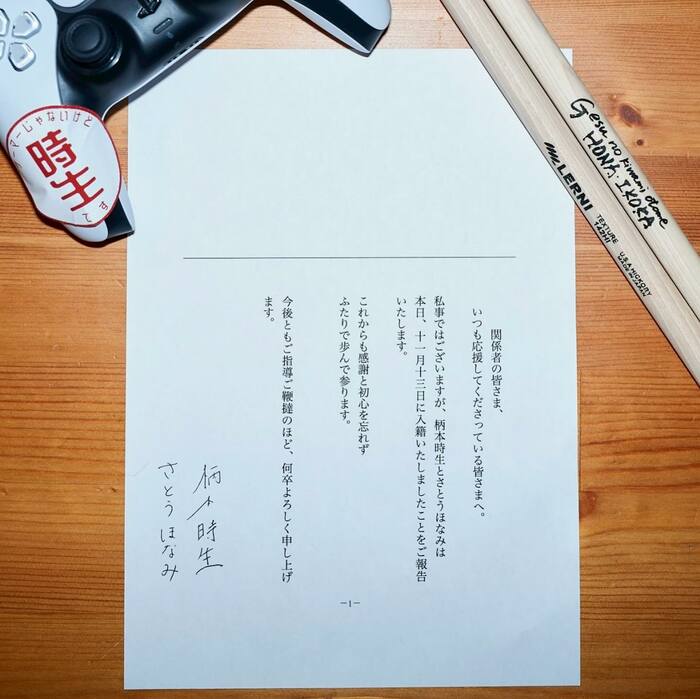 ーマーじゃないけど
時生
です
Gesu no kiwami otome
HONA. IKOKA
LERNI
TEXTURE
TAMHI
U.S.A HICKORY
MADE IN JAPAN
関係者の皆さま、
いつも応援してくださっている皆さまへ。
私事ではございますが、柄本時生とさとうほなみは
本日、十一月十三日に入籍いたしましたことをご報告
いたします。
これからも感謝と初心を忘れず
ふたりで歩んで参ります。
今後ともご指導ご鞭撻のほど、何卒よろしく申し上げ
ます。
柄本時生
さとうほなみ
-1-